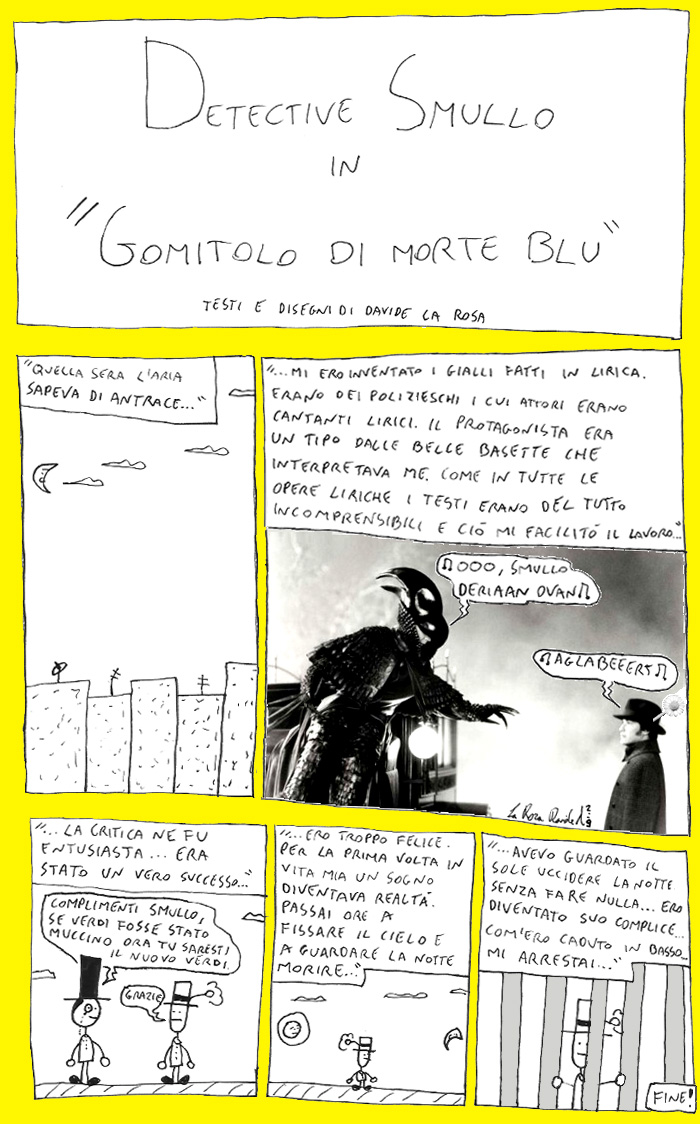 DETECTIVE SMULLO
IN
"GOMITOLO DI MORTE BLU"
TESTI E DISEGNI DI DAVIDE LA ROSA
"QUELLA SERA L'ARIA
SAPEVA DI ANTRACE..."
"...MI ERO INVENTATO I GIALLI FATTI IN LIRICA.
ERANO DEI POLIZIESCHI I CUI ATTORI ERANO
CANTANTI LIRICI. IL PROTAGONISTA ERA
UN TIPO DALLE BELLE BASETTE CHE
INTERPRETAVA ME. COME IN TUTTE LE
OPERE LIRICHE I TESTI ERANO DEL TUTTO
INCOMPRENSIBILI E CIÒ MI FACILITÒ IL LAVORO..."
OOO, SMULLO
DERIAAN OVAN
AGLABEEERT
La Rosa Davide
"...LA CRITICA NE FU
ENTUSIASTA... ERA
STATO UN VERO SUCCESSO..."
COMPLIMENTI SMULLO,
SE VERDI FOSSE STATO
MUCCINO ORA TU SARESTI
IL NUOVO VERDI.
GRAZIE
"...ERO TROPPO FELICE.
PER LA PRIMA VOLTA IN
VITA MIA UN SOGNO
DIVENTAVA REALTÀ.
PASSAI ORE A
FISSARE IL CIELO E
A GUARDARE LA NOTTE
MORIRE..."
"...AVEVO GUARDATO IL
SOLE UCCIDERE LA NOTTE
SENZA FARE NULLA... ERO
DIVENTATO SUO COMPLICE...
COM'ERO CADUTO IN BASSO...
MI ARRESTAI..."
FINE!